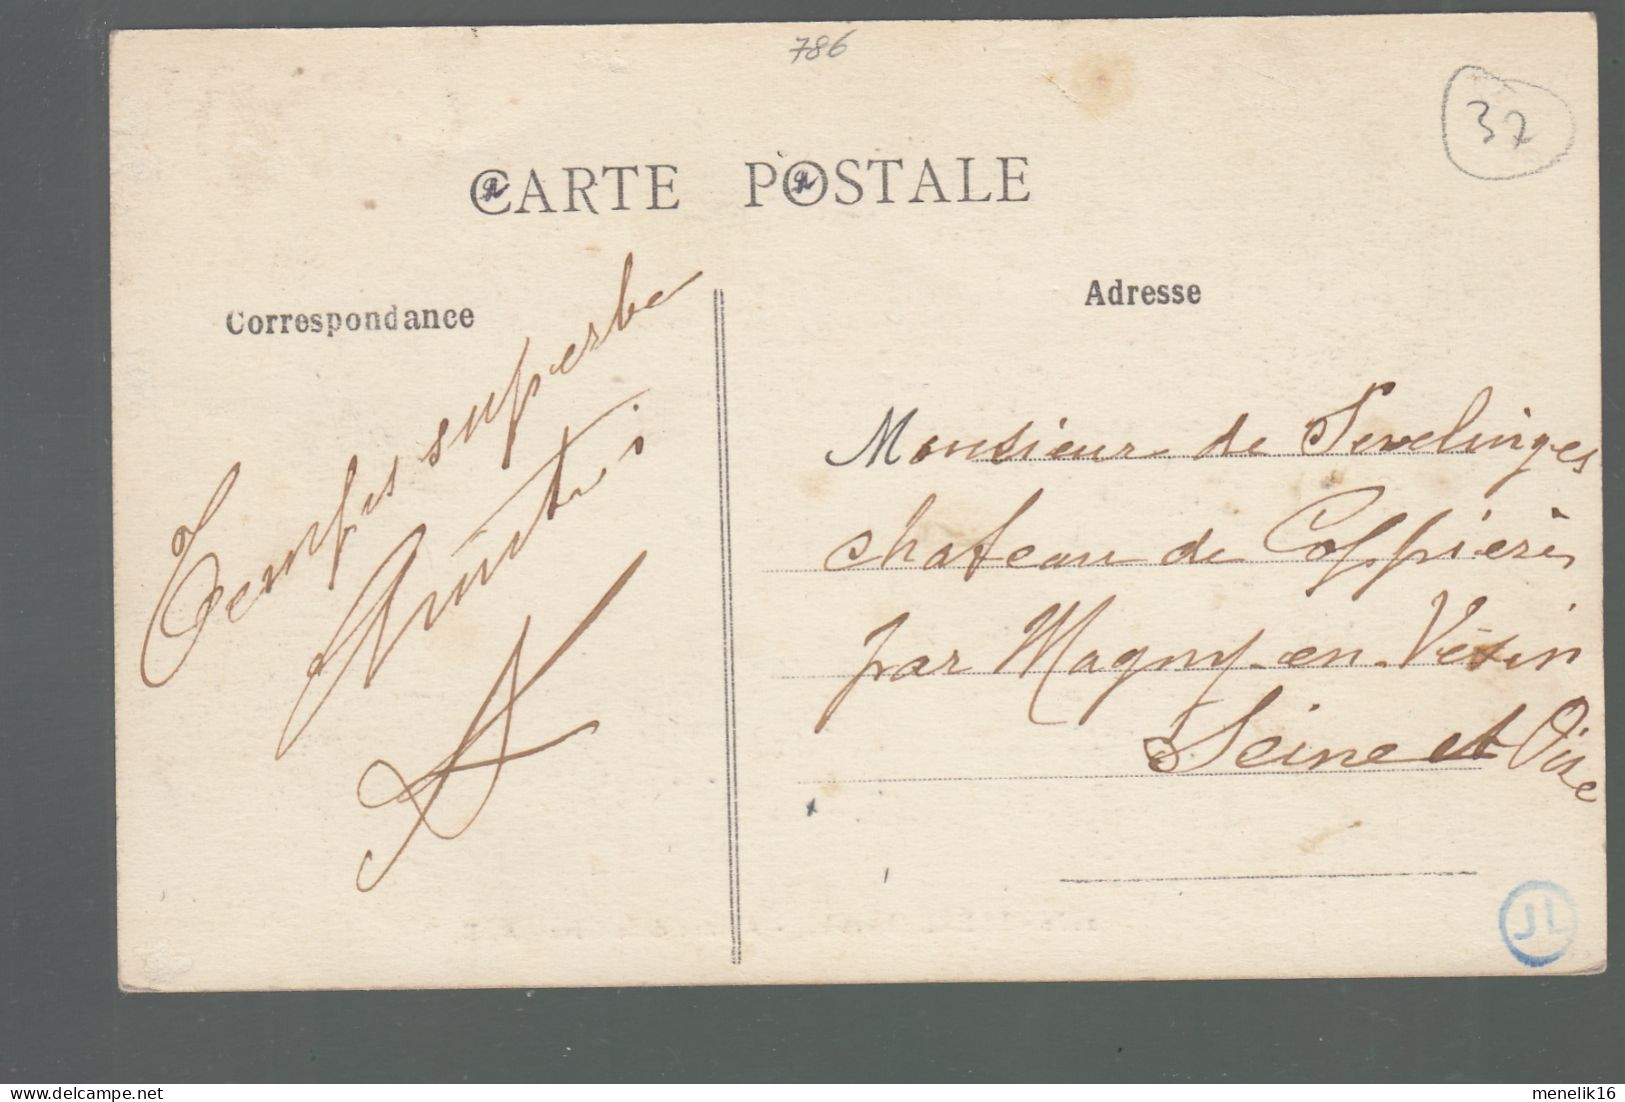 786
37
CARTE POSTALE
Correspondance
Adresse
Temps superbe
Amitiés
Monsieur de Sevelinges
chateau de Coppières
par Magny-en-Vexin
Seine et Oise
JL
menelik16